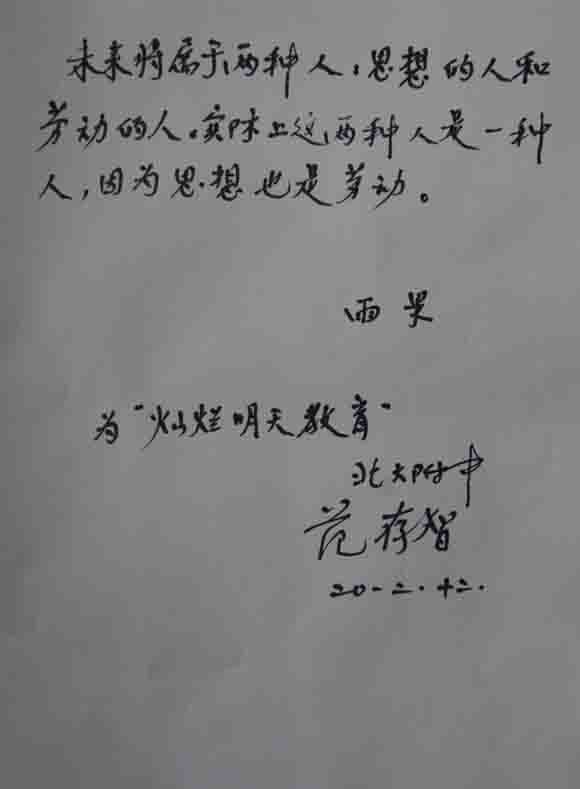 未来将属于两种人：思想的人和
劳动的人。实际上这两种人是一种
人，因为思想也是劳动。
雨果
为"灿烂明天教育"
北大附中
范存智